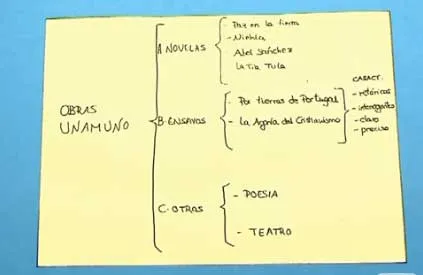 OBRAS
UNAMUNO
A NOVELAS
- Paz en la tierra
- Niebla
Abel Sánchez
La Tía Tula
B. ENSAYOS
- Por tierras de Portugal
- La Agonía del Cristianismo
CARACT.
- retóricas
- claro
- preciso
C. OTROS
- POESIA
- TEATRO